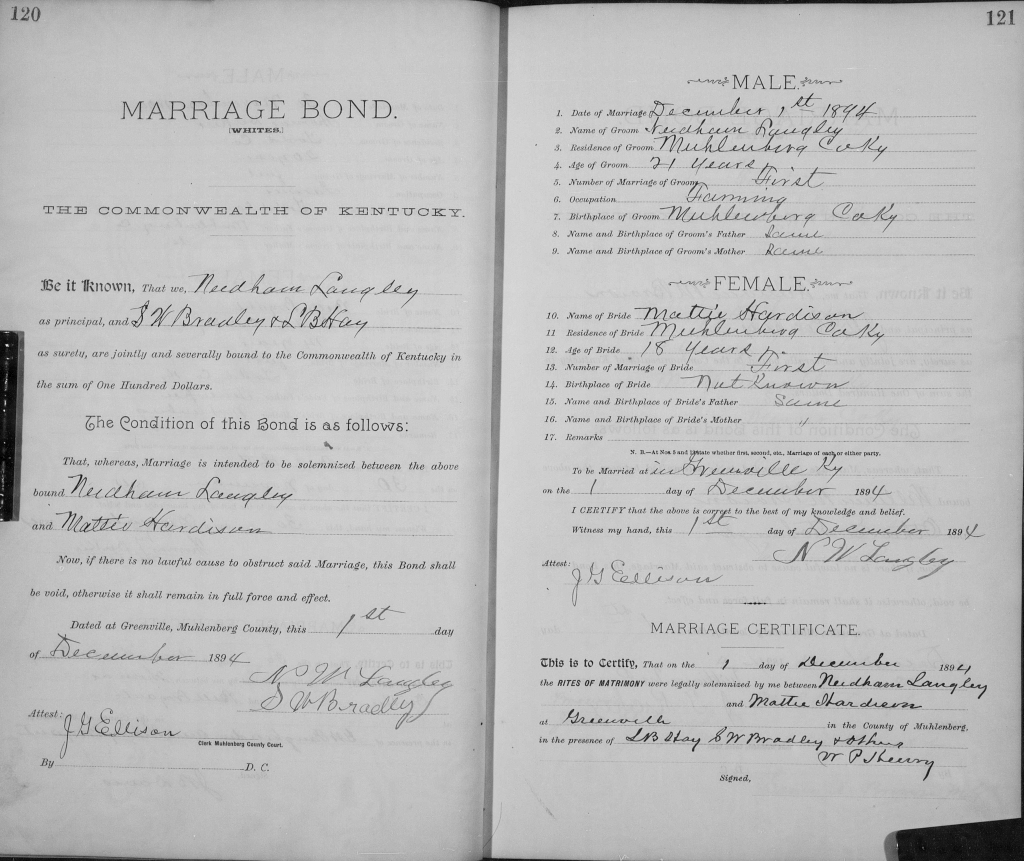 120
MARRIAGE BOND.
[WHITES.]
THE COMMONWEALTH OF KENTUCKY.
Be it Known, That we, Needham Langley
as principal, and S W Bradley & L B Hay
as surety, are jointly and severally bound to the Commonwealth of Kentucky in
the sum of One Hundred Dollars.
The Condition of this Bond is as follows:
That, whereas, Marriage is intended to be solemnized between the above
bound Needham Langley
and Mattie Hardison
Now, if there is no lawful cause to obstruct said Marriage, this Bond shall
be void, otherwise it shall remain in full force and effect.
Dated at Greenville, Muhlenberg County, this 1st day
of December 1894
N W Langley
S W Bradley
Attest:
J G Ellison
Clerk Muhlenberg County Court.
By D. C.
121
MALE.
1. Date of Marriage December 1st 1894
2. Name of Groom Needham Langley
3. Residence of Groom Muhlenberg Co Ky
4. Age of Groom 21 Years
5. Number of Marriage of Groom First
6. Occupation Farming
7. Birthplace of Groom Muhlenberg Co Ky
8. Name and Birthplace of Groom's Father Same
9. Name and Birthplace of Groom's Mother Same
FEMALE.
10. Name of Bride Mattie Hardison
11 Residence of Bride Muhlenberg Co Ky
12. Age of Bride 18 Years
13. Number of Marriage of Bride First
14. Birthplace of Bride Not Known
15. Name and Birthplace of Bride's Father Same
16. Name and Birthplace of Bride's Mother "
17. Remarks
N. B.—At Nos 5 and 13 state whether first, second, etc., Marriage of each or either party.
To be Married at in Greenville Ky
on the 1 day of December 1894
I CERTIFY that the above is correct to the best of my knowledge and belief.
Witness my hand, this 1st day of December 1894
N W Langley
Attest:
J G Ellison
MARRIAGE CERTIFICATE.
This is to Certify, That on the 1 day of December 1894
the RITES OF MATRIMONY were legally solemnized by me between Needham Langley
and Mattie Hardison
at Greenville in the County of Muhlenberg,
in the presence of L B Hay S W Bradley & others
W P Henry
Signed,